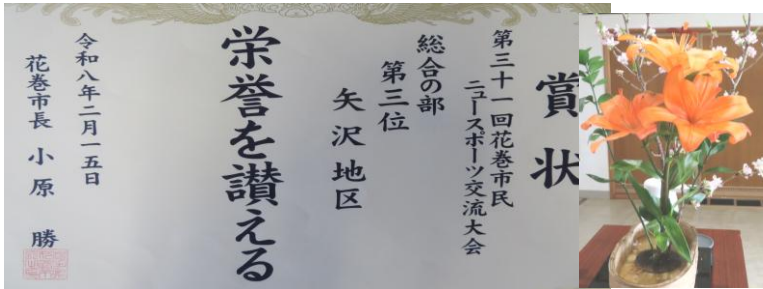 賞状
第三十一回花巻市民
ニュースポーツ交流大会
総合の部
第三位
矢沢地区
栄誉を讃える
令和八年二月一五日
花巻市長 小原 勝